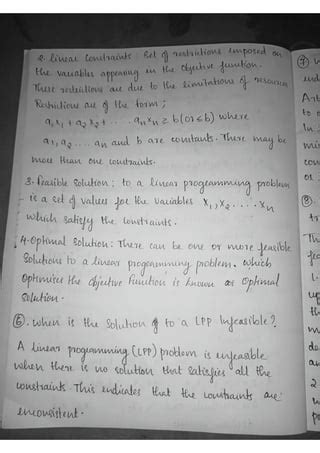 2. linear constraints: Set of restrictions imposed on
the variables appearing in the objective function.
These restrictions are due to the limitations of resources
Restrictions are of the form;
a₁x₁ + a₂x₂ + . . . . aₙxₙ ≥ b (or ≤ b) where
a₁, a₂ .... aₙ and b are constants. There may be
more than one constraints.
3. Feasible solution: to a linear programming problem
is a set of values for the variables x₁, x₂ . . . . xₙ
which satisfy the constraints.
4. Optimal solution: There can be one or more feasible
solutions to a linear programming problem. which
optimises the objective function is known as optimal
solution.
⑥. When is the solution to a LPP Infeasible?
A linear programming (LPP) problem is infeasible
when there is no solution that satisfies all the
constraints. This indicates that the constraints are
inconsistent.